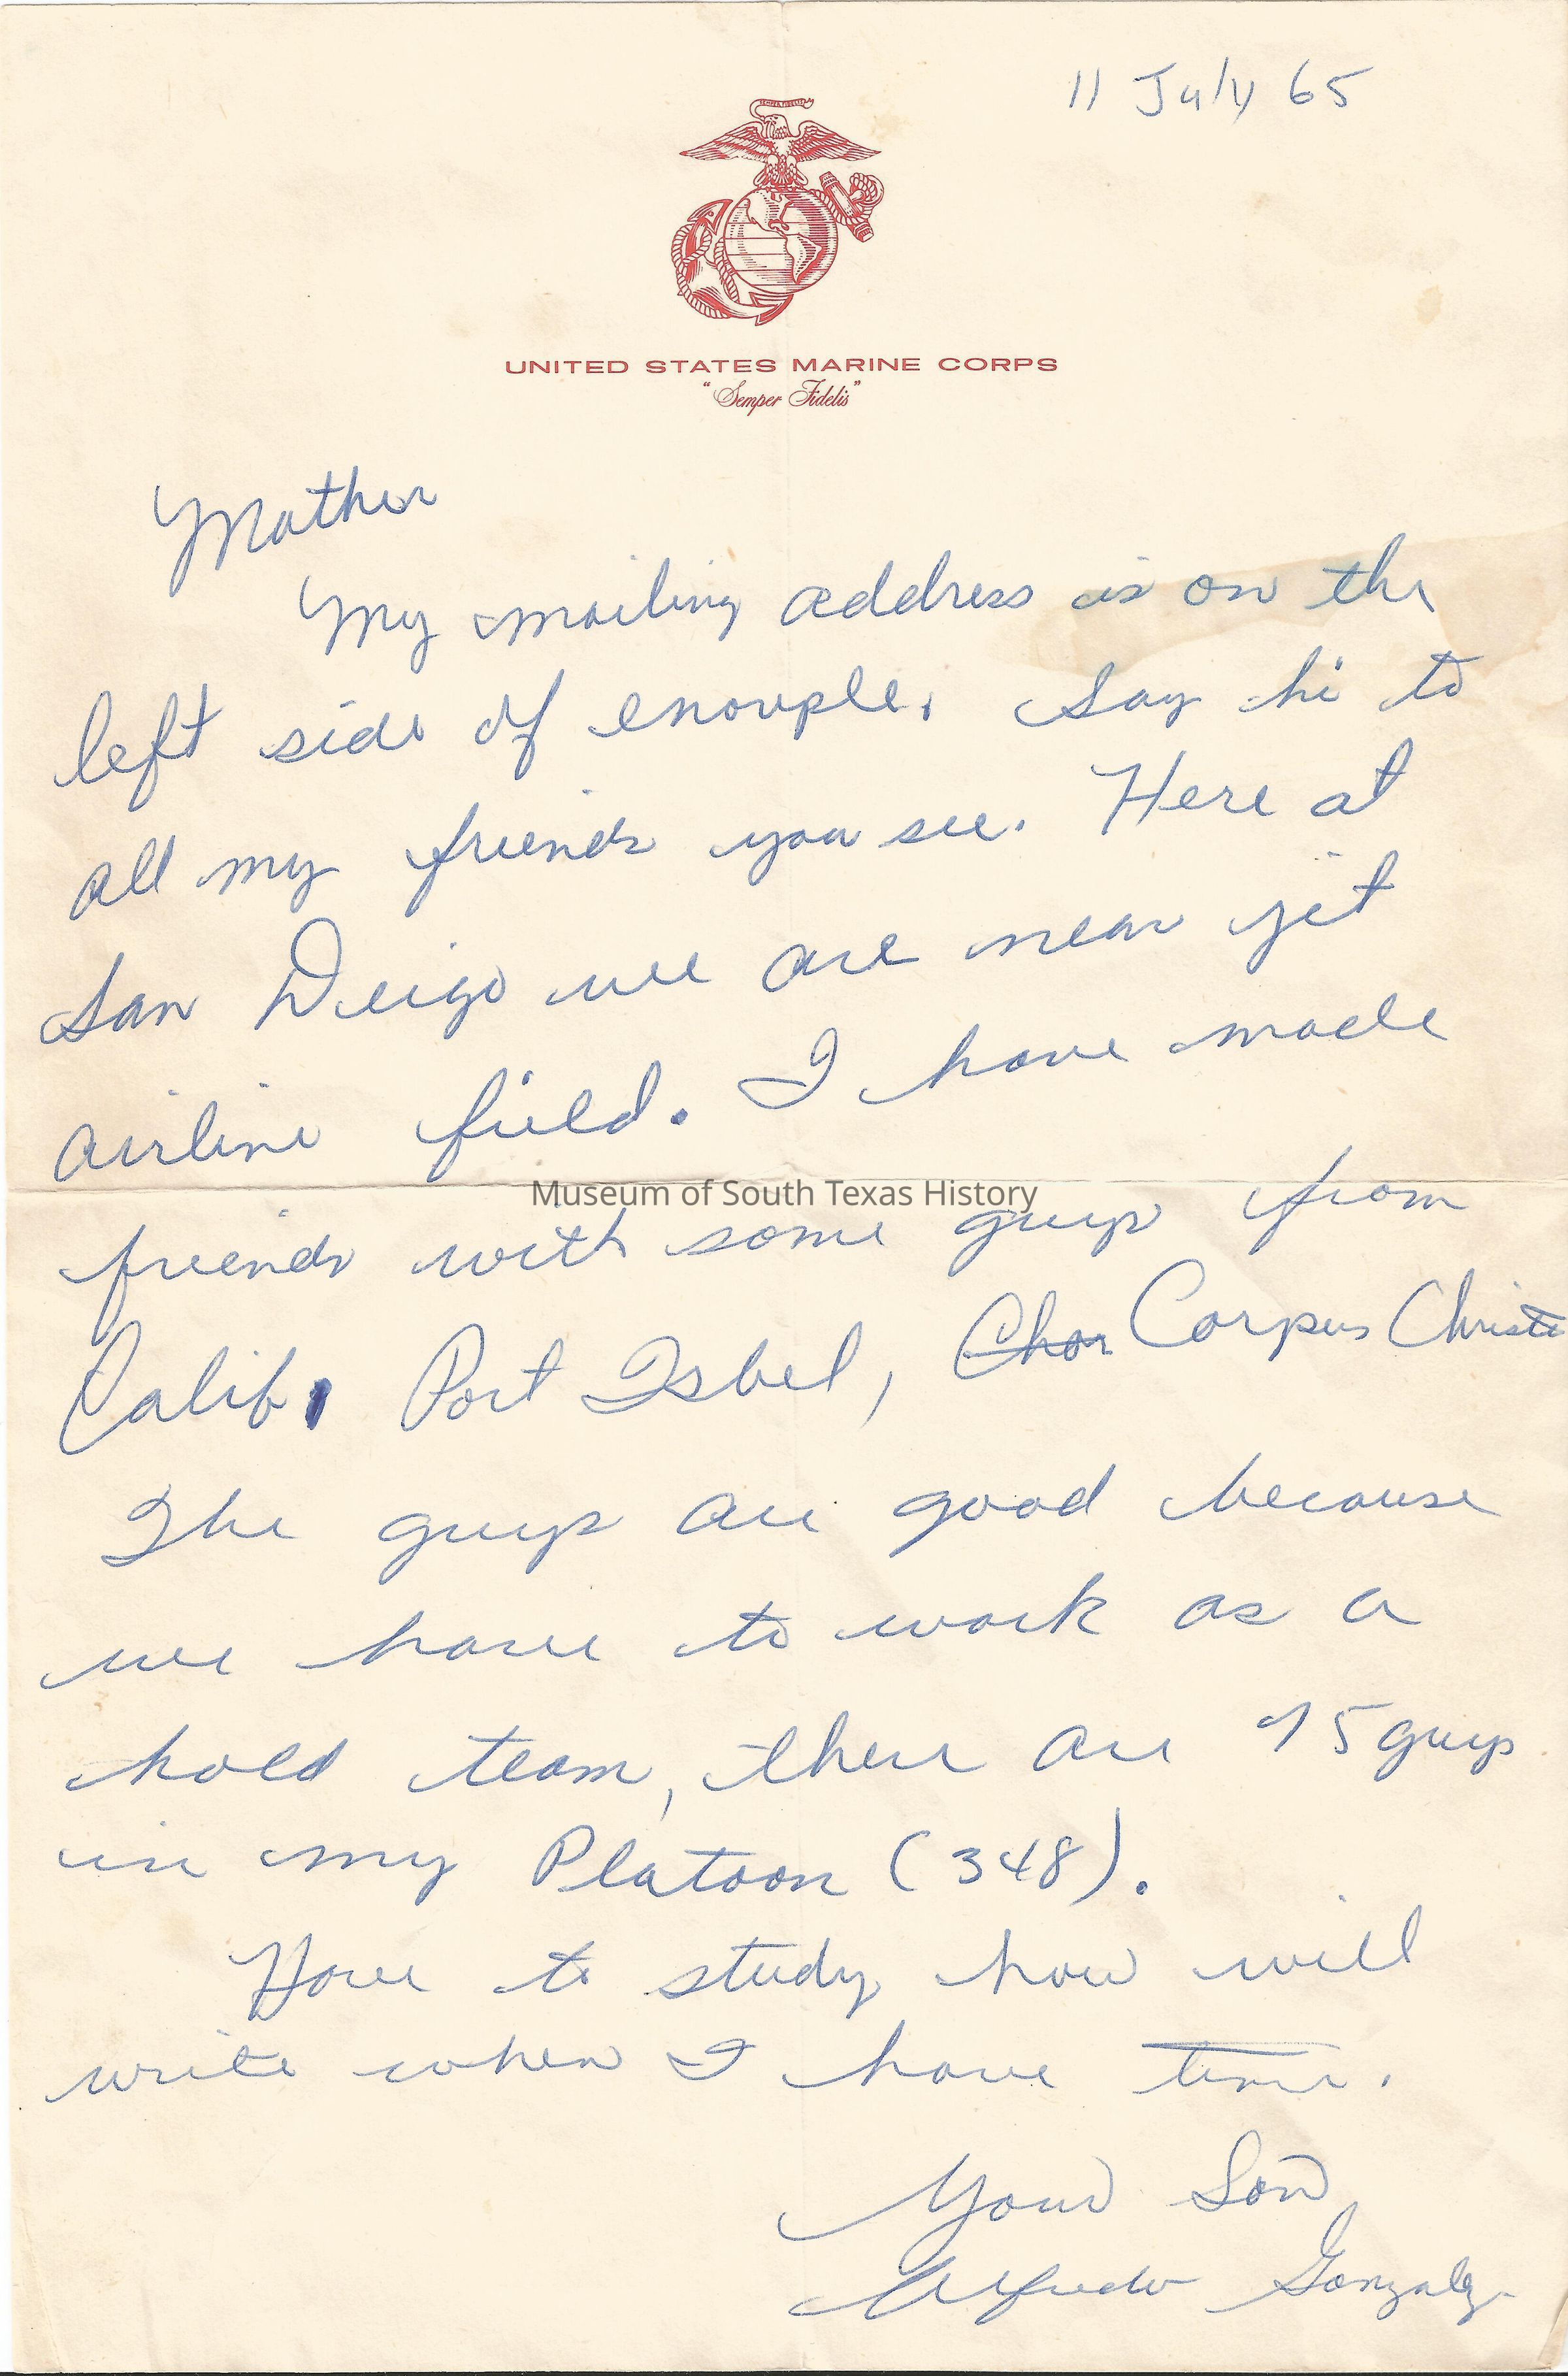 11 July 65
UNITED STATES MARINE CORPS
"Semper Fidelis"
Mother
My mailing address is on the
left side of enovple. Say hi to
all my friends you see. Here at
San Deigo we are near jet
airline field. I have made
Museum of South Texas History
friends with some guys from
Calif, Port Isbel, Chor Corpus Christi
The guys are good because
we have to work as a
hold team, there are 75 guys
in my Platoon (348).
Have to study how will
write when I have time.
Your Son
Alfredo Gonzalez